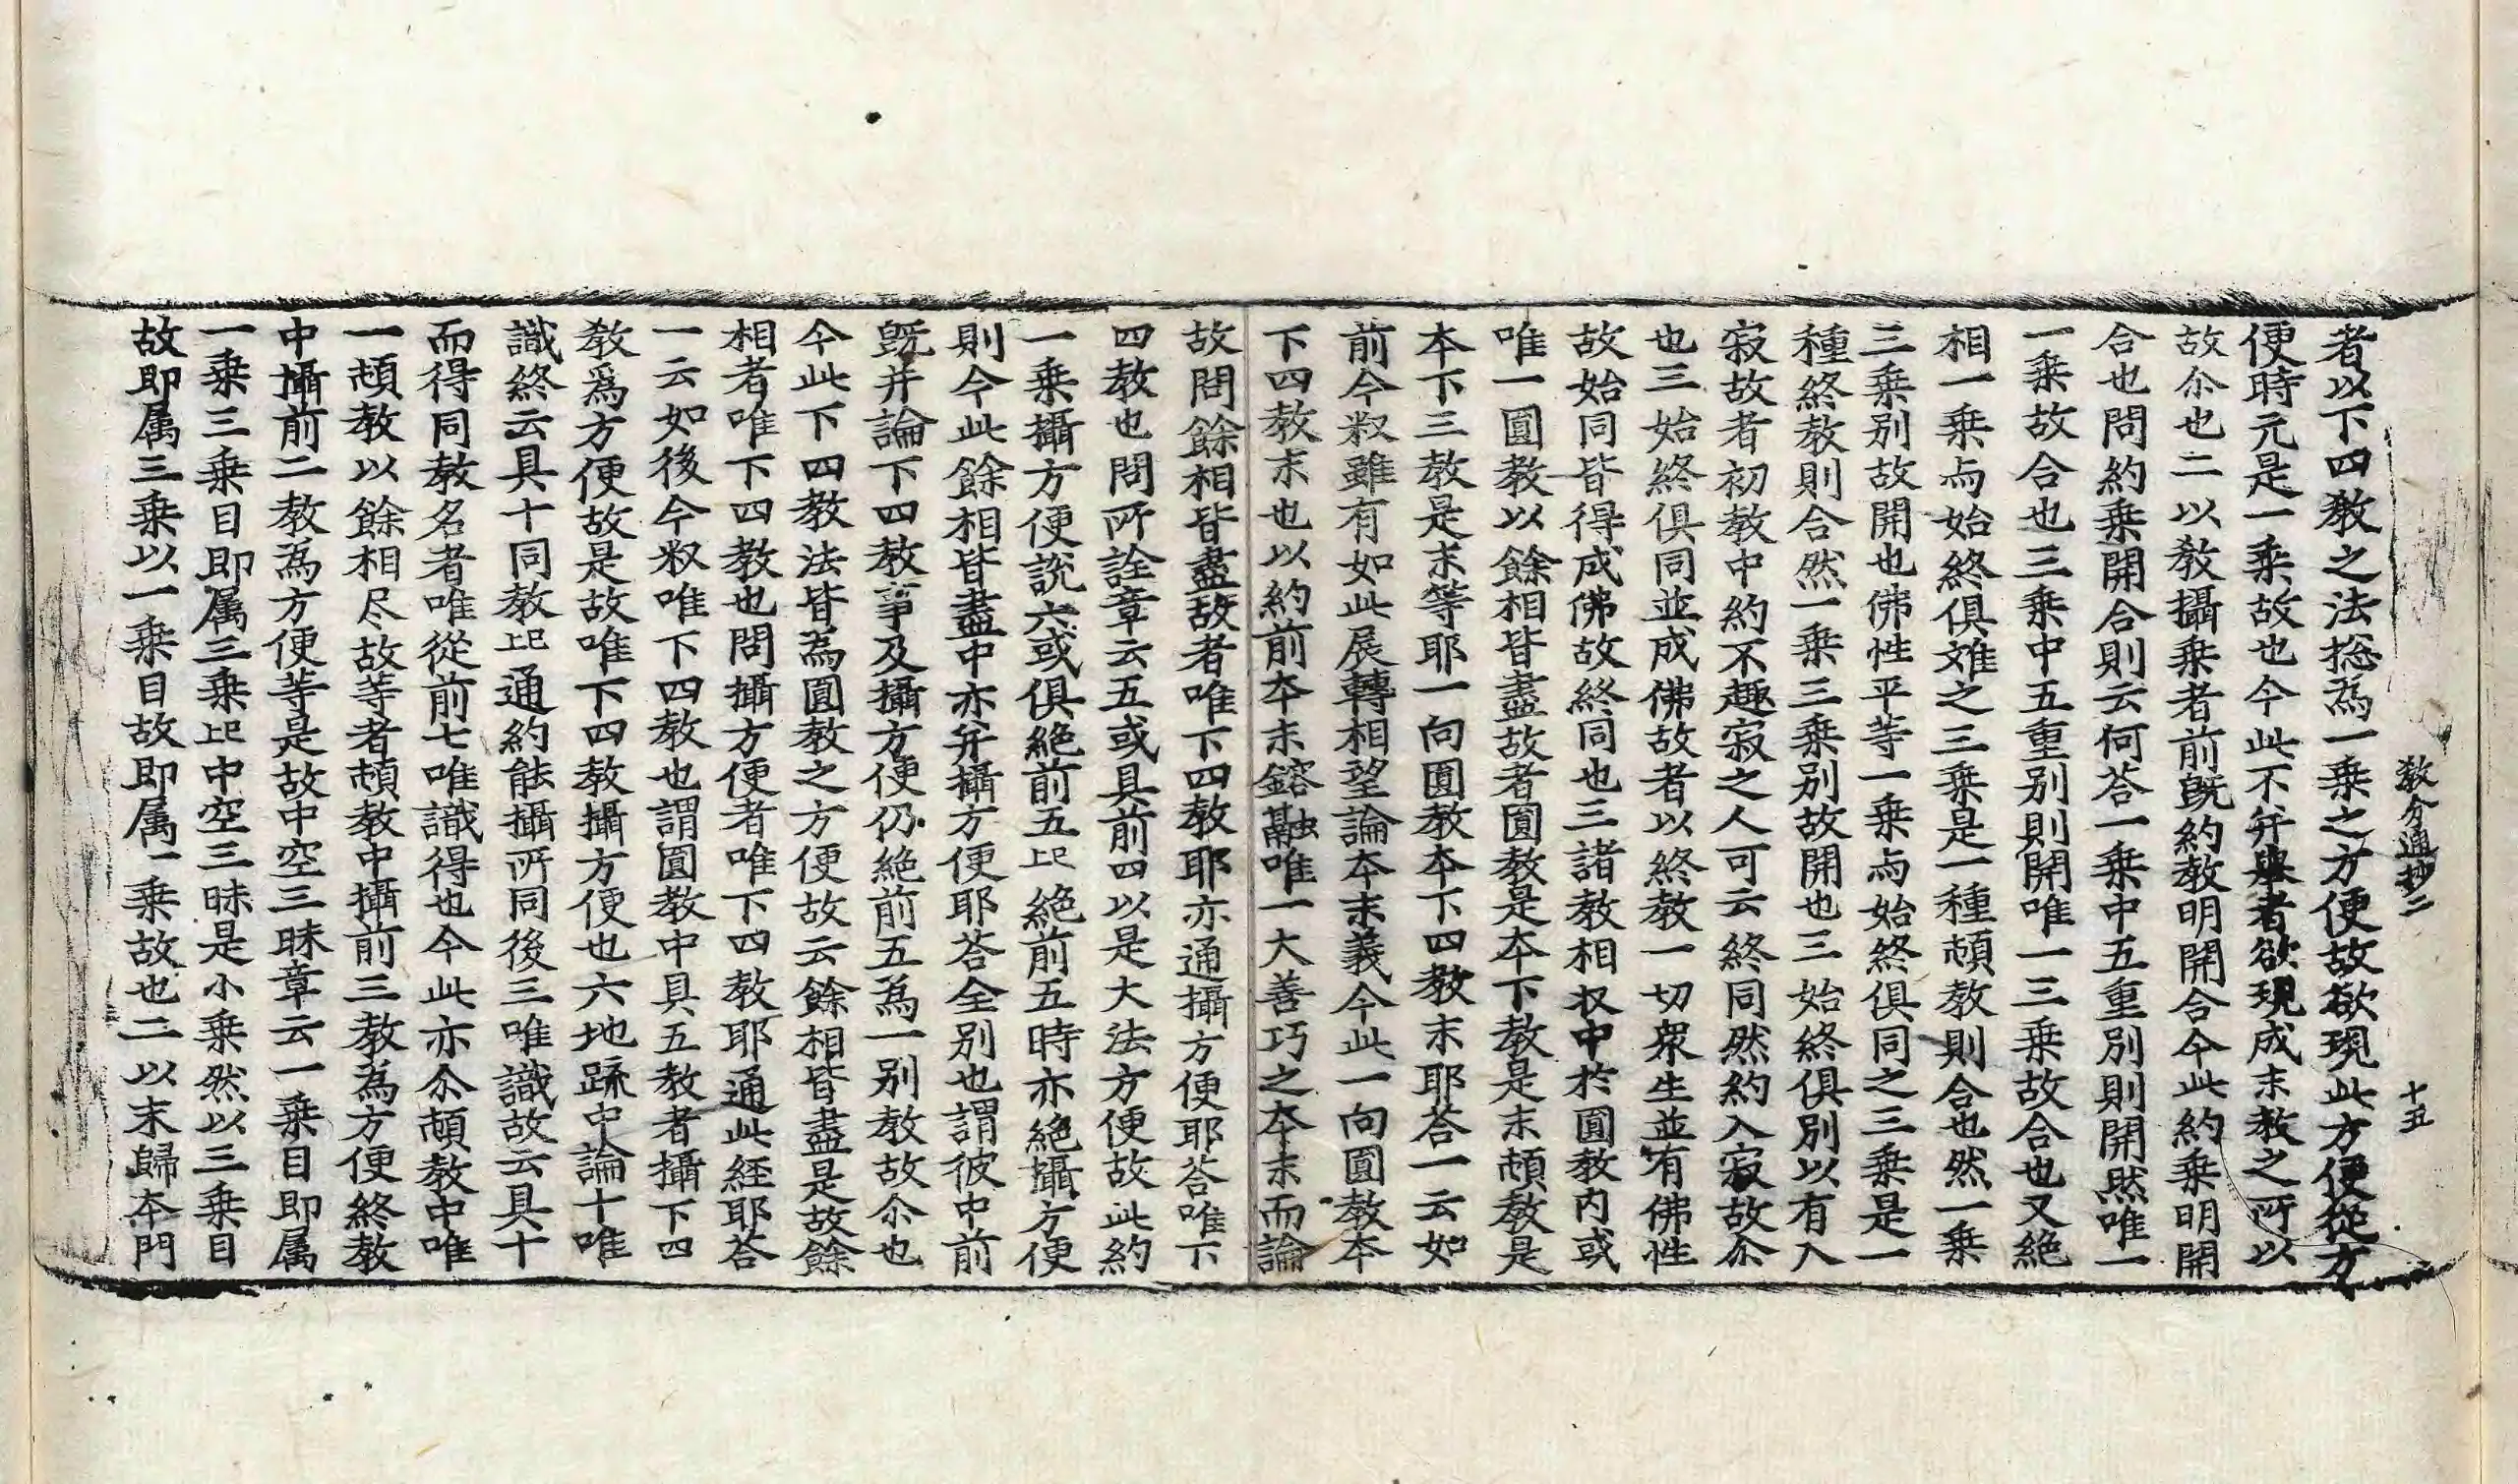 教分通抄二　十五
者以下四教之法揔為一乗之方便故欲現此方便從方
便時元是一乗故也今此不弁異者欲現成末教之所以
故尒也二以教攝乗者前旣約教明開合今此約乗明開
合也問約乗開合則云何荅一乗中五重別則開然唯一
一乗故合也三乗中五重別則開唯一三乗故合也又絶
相一乗与始終俱难之三乗是一種頓教則合也然一乗
三乗別故開也佛性平等一乗与始終俱同之三乗是一
種終教則合然一乗三乗別故開也三始終俱別以有入
寂故者初教中約不趣寂之人可云終同然約入寂故尒
也三始終俱同並成佛故者以終教一切衆生並有佛性
故始同皆得成佛故終同也三諸教相収中於圓教内或
唯一圓教以餘相皆盡故者圓教是夲下教是末頓教是
夲下三教是末等耶一向圓教夲下四教末耶荅一云如
前今釈雖有如此展轉相望論夲末義今此一向圓教夲
下四教末也以約前夲末鎔融唯一大善巧之夲末而論
故問餘相皆盡故者唯下四教耶亦通攝方便耶荅唯下
四教也問所詮章云五或具前四以是大法方便故此約
一乗攝方便說六或俱絶前五上巳絶前五時亦絶攝方便
則今此餘相皆盡中亦弁攝方便耶荅全別也謂彼中前
旣弁論下四教事及攝方便仍絶前五為一別教故尒也
今此下四教法皆為圓教之方便故云餘相皆盡是故餘
相者唯下四教也問攝方便者唯下四教耶通此経耶荅
一云如後今釈唯下四教也謂圓教中具五教者攝下四
教爲方便故是故唯下四教攝方便也六地䟽中論十唯
識終云具十同教上巳通約能攝所同後三唯識故云具十
而得同教名者唯從前七唯識得也今此亦尒頓教中唯
一頓教以餘相尽故等者頓教中攝前三教為方便終教
中攝前二教為方便等是故中空三昧章云一乗目即属
一乗三乗目即属三乗上巳中空三昧是小乗然以三乗目
故即属三乗以一乗目故即属一乗故也二以末歸夲門